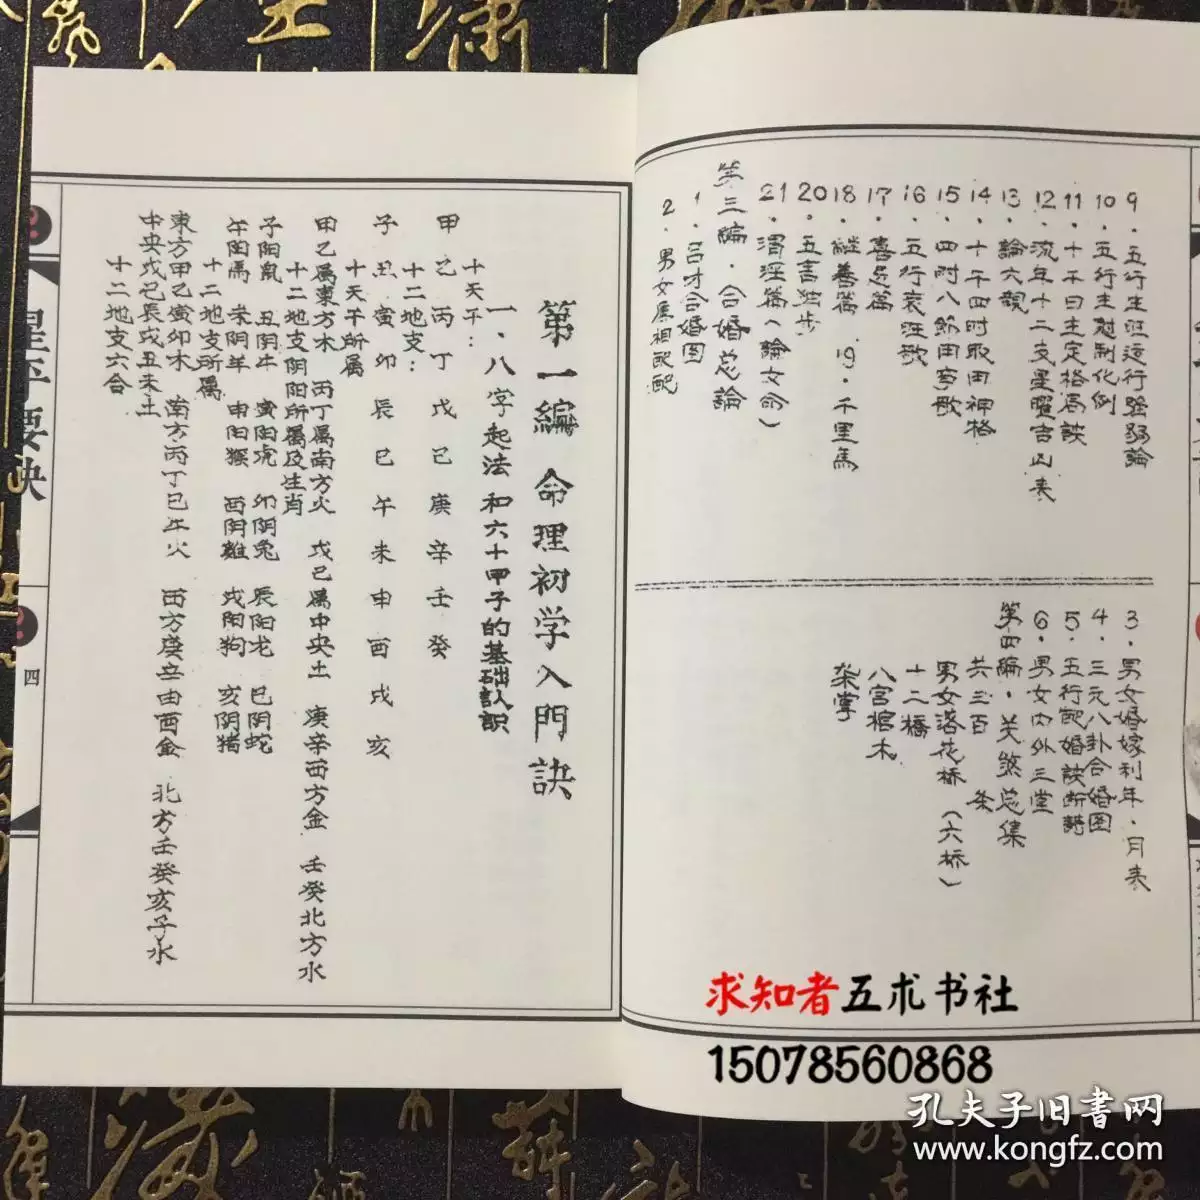 9．五行生旺运行强弱論
10．五行生尅制化例
11．十干日主定格局訣
12．流年十二支星曜吉凶表
13．論六親
14．十干四时取用神格
15．四时八節用事歌
16．五行衰旺歌
17．喜忌篇
18．継善篇　19．千里馬
20．五言独步
21．渭泾篇（論女命）
第三編．合婚总論
1．吕才合婚图
2．男女属相配配
3．男女婚嫁利年．月表
4．三元八卦合婚图
5．五行配婚訣断詩
6．男女内外三堂
第四編．关煞总集
共三百　条
男女落花桥（六桥）
十二橋
八宫棺木
架掌
第一編　命理初学入門訣
一．八字起法和六十甲子的基础认识
十天干：
甲乙丙丁戊己庚辛壬癸
十二地支：
子丑寅卯辰巳午未申酉戌亥
十天干所属
甲乙属東方木　丙丁属南方火　戊己属中央土　庚辛西方金　壬癸北方水
十二地支阴阳所属及生肖
子阳鼠　丑阴牛　寅阳虎　卯阴兔　辰阳龙　巳阴蛇
午阳馬　未阴羊　申阳猴　酉阴雞　戌阳狗　亥阴猪
十二地支所属
東方甲乙寅卯木　南方丙丁巳午火　西方庚辛申酉金　北方壬癸亥子水
中央戊己辰戌丑未土
十二地支六合
星平要诀
四
求知者五术书社
15078560868
孔夫子旧書网
www.kongfz.com